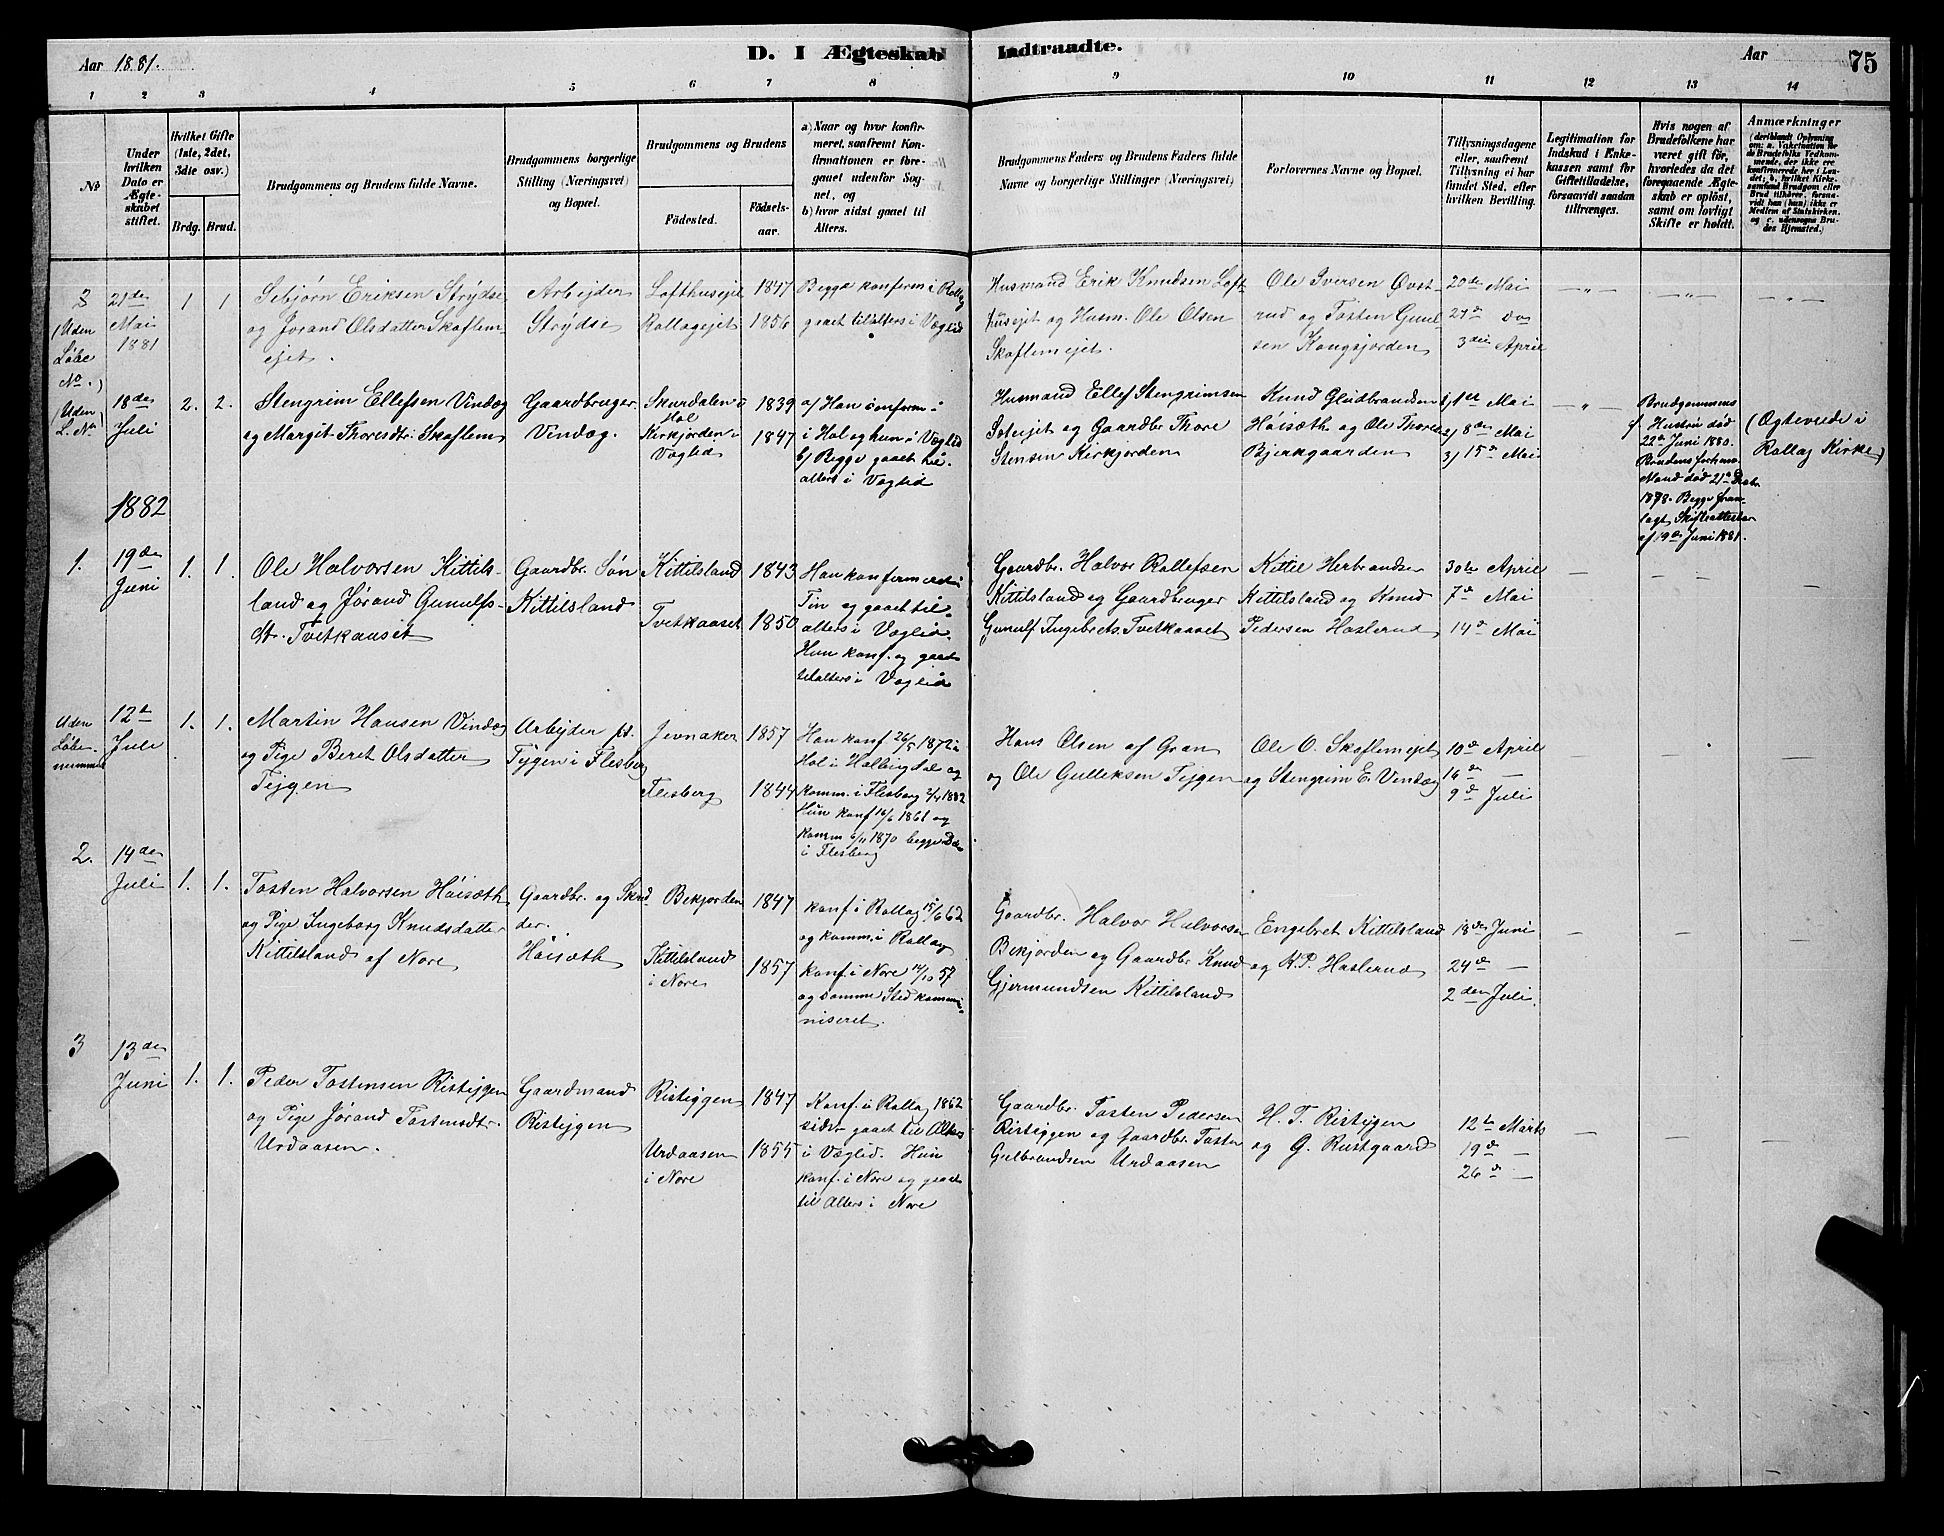 Aar 1881.
D. I Ægteskab Indtraadte.
Aar
75
1 2 3 4 5 6 7 8 9 10 11 12 13 14
No
Under hvilken Dato er Ægteskabet stiftet.
Hvilket Gifte (1ste, 2det, 3die osv.)
Brdg. Brud.
Brudgommens og Brudens fulde Navne.
Brudgommens borgerlige Stilling (Næringsvei) og Bopæl.
Brudgommens og Brudens
Fødested.
Fødselsaar.
a) Naar og hvor konfirmeret, saafremt Konfirmationen er foregaaet udenfor Sognet, og
b) hvor sidst gaaet til Alters.
Brudgommens Faders og Brudens Faders fulde Navne og borgerlige Stillinger (Næringsvei)
Forlovernes Navne og Bopæl.
Tillysningsdagene eller, saafremt Tillysning ei har fundet Sted, efter hvilken Bevilling.
Legitimation for Indskud i Enkekassen samt for Giftetilladelse, forsaavidt saadan tiltrænges.
Hvis nogen af Brudefolkene har været gift før, hvorledes da det foregaaende Ægteskab er opløst, samt om lovligt Skifte er holdt.
Anmærkninger
(deriblandt Oplysning om: a. Vakcination for de Brudefolks Vedkommende, der ikke ere konfirmerede her i Landet; b. hvilket Kirkesamfund Brudgom eller Brud tilhører, forsaavidt han (hun) ikke er Medlem af Statskirken, og c. udensogns Brudes Hjemsted.)
3
(Uden
Løbe
No.)
21de
Mai
1881
1 1
Sebjørn Eriksen Strydse
og Jørand Olsdatter Skoflem
ejet.
Arbejder
Strydse
Lofthusejet 1847
Rollagejet 1856
Begge konferm. i Rollag
gaaet tilalters i Væglid
Husmand Erik Knudsen Loft
husejet og Husm. Ole Olsen
Skoflemejet.
Ole Iversen Øvst
rud og Tosten Gunl
sen Kongsjorden
20de Mai
27de do
3die April
(Uden
L. No
18de
Juli
2. 2.
Stengrim Ellefsen Vindæg
og Margit Thoresdtr. Skoflem
Gaardbruger
Vindæg.
Skurdalen i
Hol 1839
Kirkjorden i
Væglid 1847
a/ Han konferm. i
i Hol og hun i Væglid
b/ Begge gaaet til
alters i Væglid
Husmand Ellef Stengrimsen
Soterejet og Gaardbr Thore
Stensen Kirkjorden
Knud Gludbrandsen
Hóisæth og Ole Thore
Bjerkgaarden
1/ 1st Mai
2/ 8de Mai
3/ 15de Mai
Brudgommens
f. Hustru død
22de Juni 1880.
Brudens forhen.
Mand død 21de Decbr
1878. Begge frem
lagt Skifteattester
af 19de Juni 1881.
(Ogteviede i
Rollag Kirke)
1882
1.
19de
Juni
1. 1.
Ole Halvorsen Kittils-
land og Jørand Gunulfs-
dtr. Tvetkaaset
Gaardbr. Søn
Kittilsland
Kittilsland 1843
Tvetkaaset 1850
Han konfermeret i
Tin og gaaet til
alters i Væglid.
Hun konf. og gaaet
tilalters i Væglid
Gaardbr. Halvor Rollefsen
Kittilsland og Gaardbruger
Gunulf Ingebrets. Tvetkaaset
Kittil Herbrandse
Kittilsland og Knud
Pedersen Haslerud
30te April
7de Mai
14de Mai
Uden
Løbe.
nummer
12te
Juli
1. 1.
Martin Hansen Vindæg
og Pige Beret Olsdatter
Tejgen
Arbejder pt.
Tejgen i Flesberg
Jevnaker 1857
Flesberg 1844
Han konf 26/5 1872 i
Hol i Hallingdal og
komm. i Flesberg 2/4 1882
Hun konf 16/6 1861 og
komm 6/11 1870 begge Dele
i Flesberg
Hans Olsen af Gran
og Ole Gulleksen Tejgen
Ole O. Skoflemejet
og Stengrim E. Vindæg
10de April
16de —
9de Juli
2.
14de
Juli
1. 1.
Tosten Halvorsen Hóisæth
og Pige Ingeborg Knudsdatter
Kittilsland af Nore
Gaardbr. og Skræd
der.
Hóisæth
Bekjorden 1847
Kittilsland
i Nore 1857
konf i Rollag 15/6 62
og komm. i Rollag
konf i Nore 14/10 57
og samme Sted kommu
niseret.
Gaardbr. Halvor Halvorsen
Bekjorden og Gaardbr Knud
Gjermundsen Kittilsland
Engebret Kittilsland
og K.P. Haslerud
18de Juni
24de —
2den Juli
3
13de
Juni
1. 1.
Peder Tostensen Ristejgen
og Pige Jørand Tostensdtr.
Urdaasen.
Gaardmand
Ristejgen
Ristejgen 1847
Urdaasen
i Nore 1855
Konf. i Rollag 1862
sidst gaaet til Alters
i Væglid. Hun
konf. i Nore og gaaet
til Alters i Nore
Gaardbr. Tosten Pedersen
Ristejgen og Gaardbr. Tosten
Gulbrandsen Urdaasen
H. T. Ristejgen
og G. Rustgaard
12te Marts
19de —
26de —